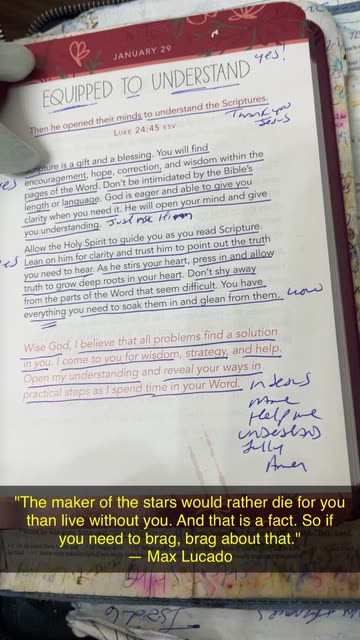 JANUARY 29
yes!
EQUIPPED TO UNDERSTAND
Then he opened their minds to understand the Scriptures.
LUKE 24:45 ESV
Thank you
Jesus
Scripture is a gift and a blessing. You will find
encouragement, hope, correction, and wisdom within the
yes
pages of the Word. Don't be intimidated by the Bible's
length or language. God is eager and able to give you
clarity when you need it. He will open your mind and give
you understanding.
Allow the Holy Spirit to guide you as you read Scripture.
yes
Lean on him for clarity and trust him to point out the truth
you need to hear. As he stirs your heart, press in and allow
truth to grow deep roots in your heart. Don't shy away
from the parts of the Word that seem difficult. You have
everything you need to soak them in and glean from them.
Wise God, I believe that all problems find a solution
in you. I come to you for wisdom, strategy, and help.
Open my understanding and reveal your ways in
practical steps as I spend time in your Word.
in Jesus
name
Help me
understand
fully
Amen
"The maker of the stars would rather die for you
than live without you. And that is a fact. So if
you need to brag, brag about that."
— Max Lucado